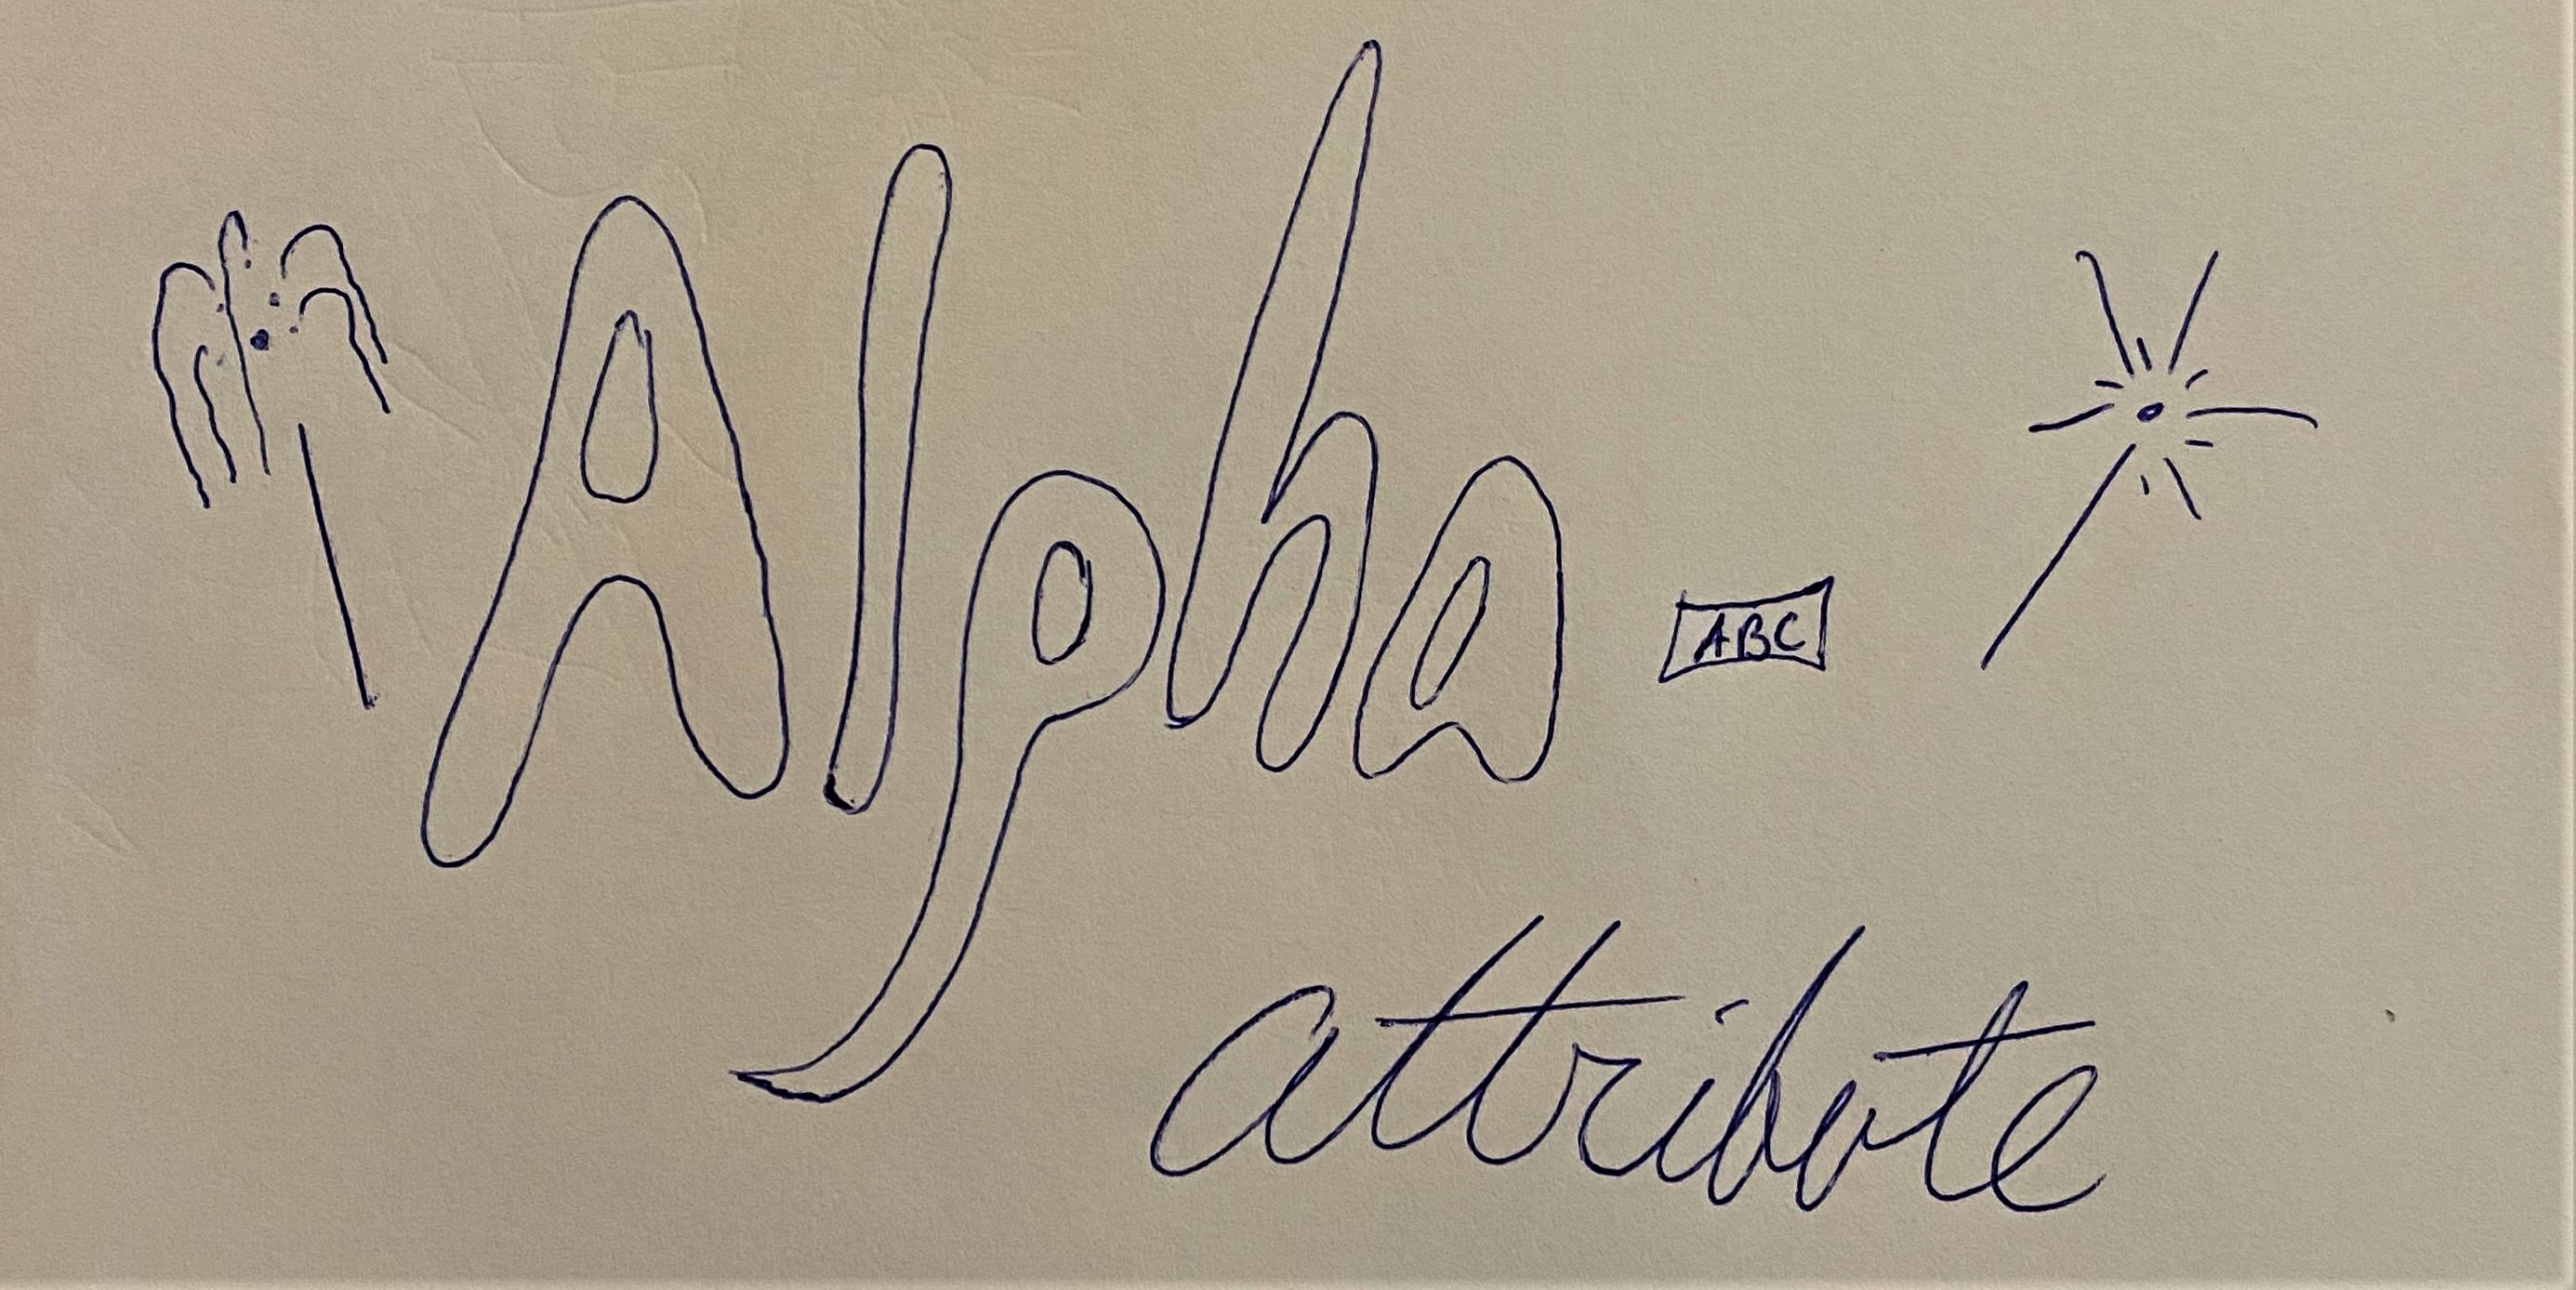 Alpha - ABC
attribute